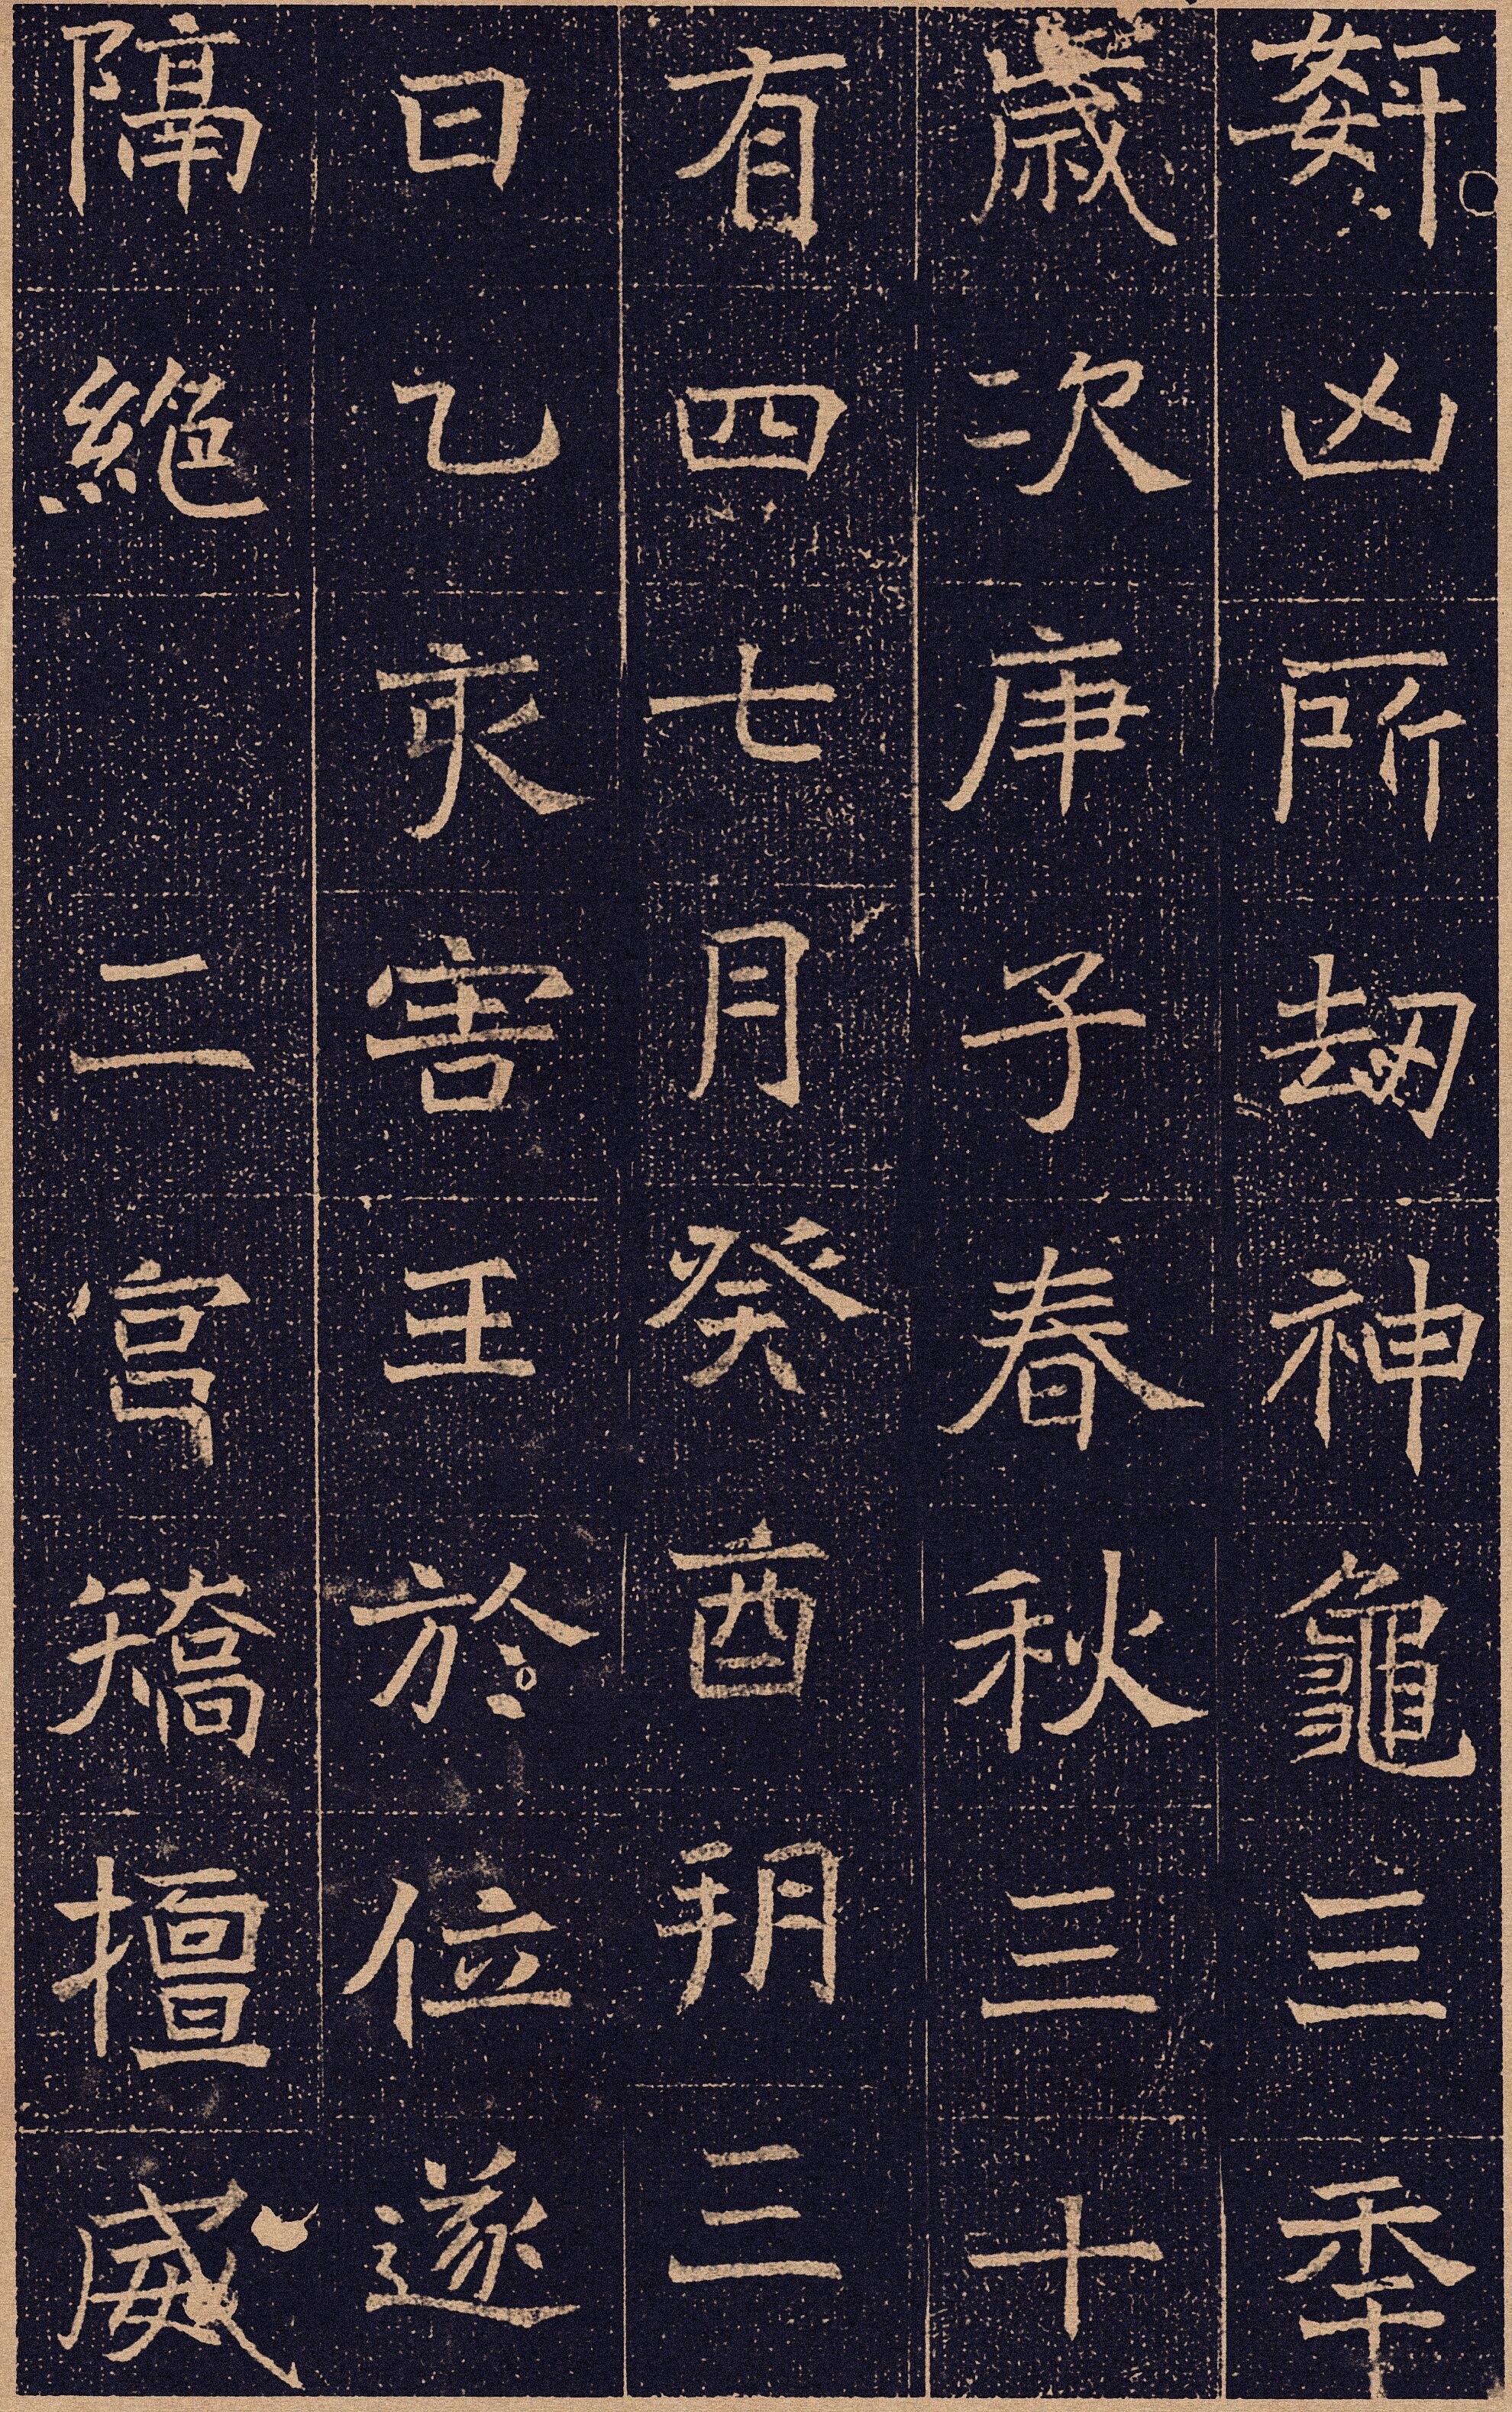 姧凶所劫神龜三秊
歲次庚子春秋三十
有四七月癸酉朔三
日乙亥害王於位遂
隔絕　二宮矯擅威